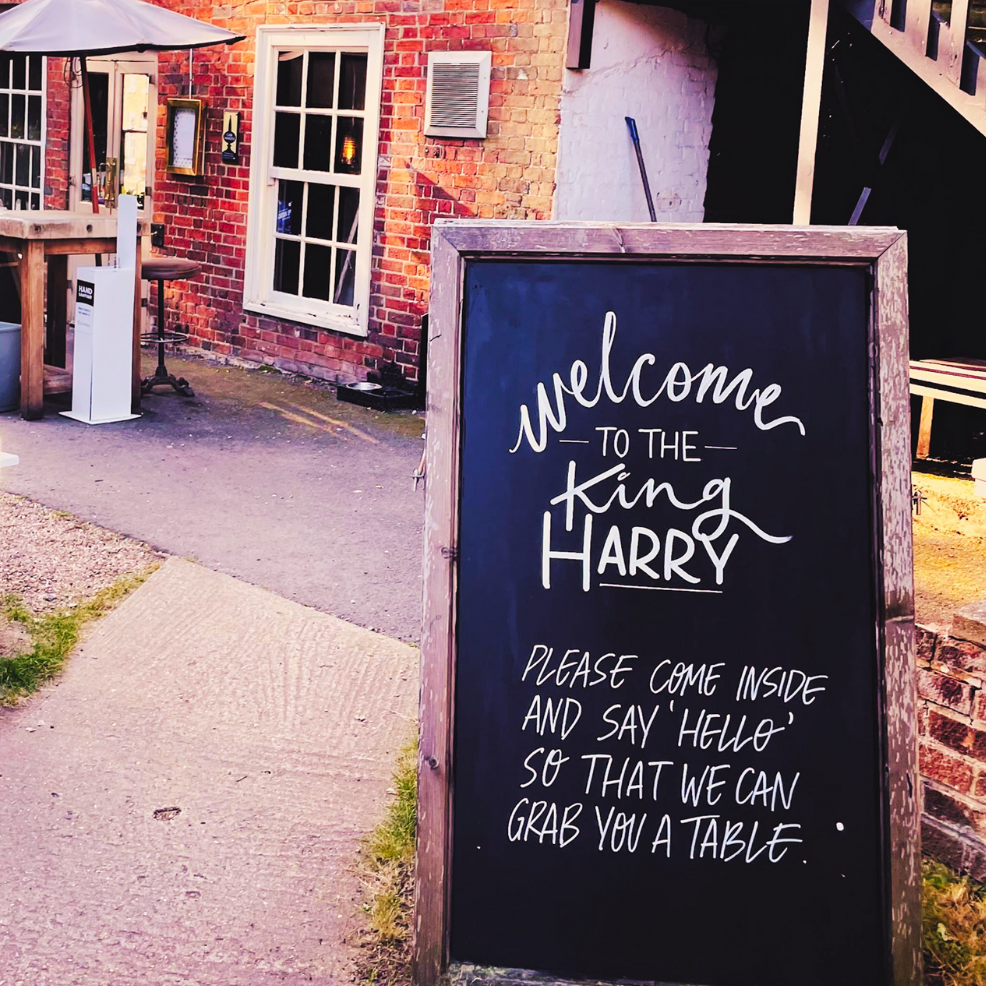 HAND
SANITISER
welcome
TO THE
King
HARRY
PLEASE COME INSIDE
AND SAY 'HELLO'
SO THAT WE CAN
GRAB YOU A TABLE.